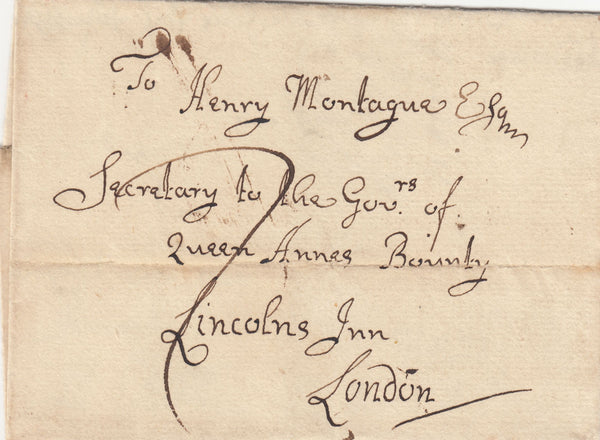 To
Henry Montague Esqr
Secretary to the Gov.rs of
Queen Annes Bounty
Lincolns Inn
London
7